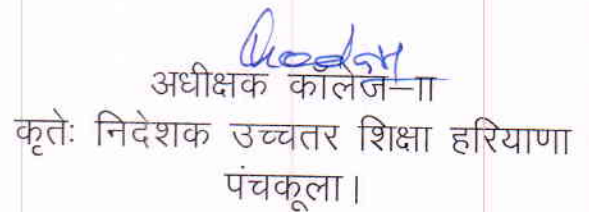 अधीक्षक कालेज–II
कृतेः निदेशक उच्चतर शिक्षा हरियाणा
पंचकूला।